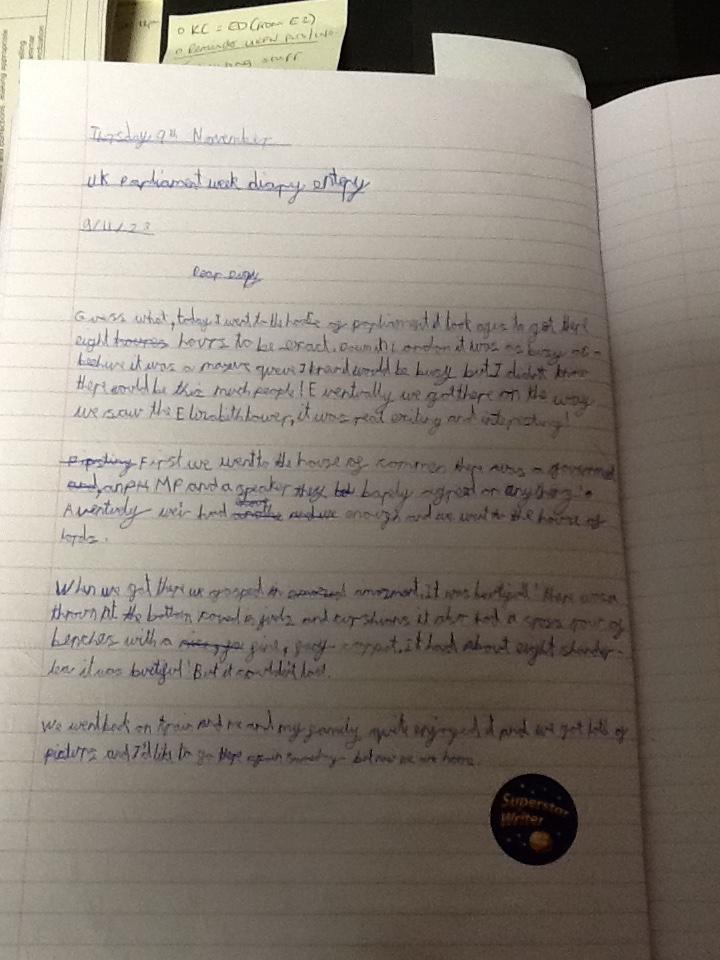 O KC = ED (from E2)
Thursday 9th November
UK Parliament week diary entry
9/11/23
Dear Diary
Guess what, today I went to the house of parliament it took ages to get there
eight hours to be exact. Down in London it was as busy as a
behive it was a masive queue I knew it would be busy but I didn't know
there would be this much people! Eventually we got there on the way
we saw the Elizabith tower, it was reat exiting and interesting!
First we went to the house of commen there was a goverment
an MP and a speaker they barely agreed on anything!
Aventurly weir had enough and we went to the house of
lords.
When we got there we gasped in amazment, it was beutifull! there was a
thrown at the bottom coverd in juels and curshians it also had a cross row of
benches with a carpet, it had about eight shander-
lear it was beutiful! But it couldn't last.
We went back on train and me and my family quite enjoyed it and we got lots of
picturs and I'd like to go there again someday but now we are home.
Superstar
Writer